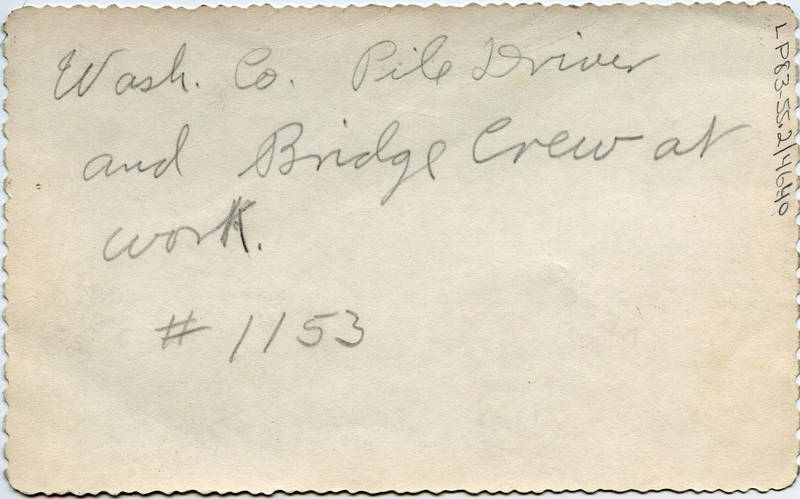 Wash. Co. Pile Driver
and Bridge Crew at
work.
# 1153
LP83-SS.2/4640